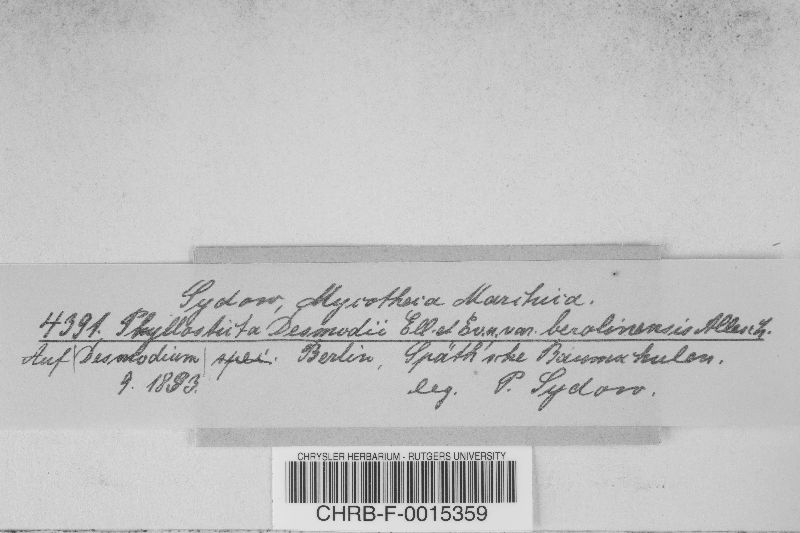 Sydow, Mycotheca Marchica.
4391. Phyllosticta Desmodii Ell. et Ev. n. var. berolinensis Allesch.
Auf |Desmodium| spec. Berlin, Späth'sche Baumschulen.
9. 1893. leg. P. Sydow.
CHRYSLER HERBARIUM - RUTGERS UNIVERSITY
CHRB-F-0015359